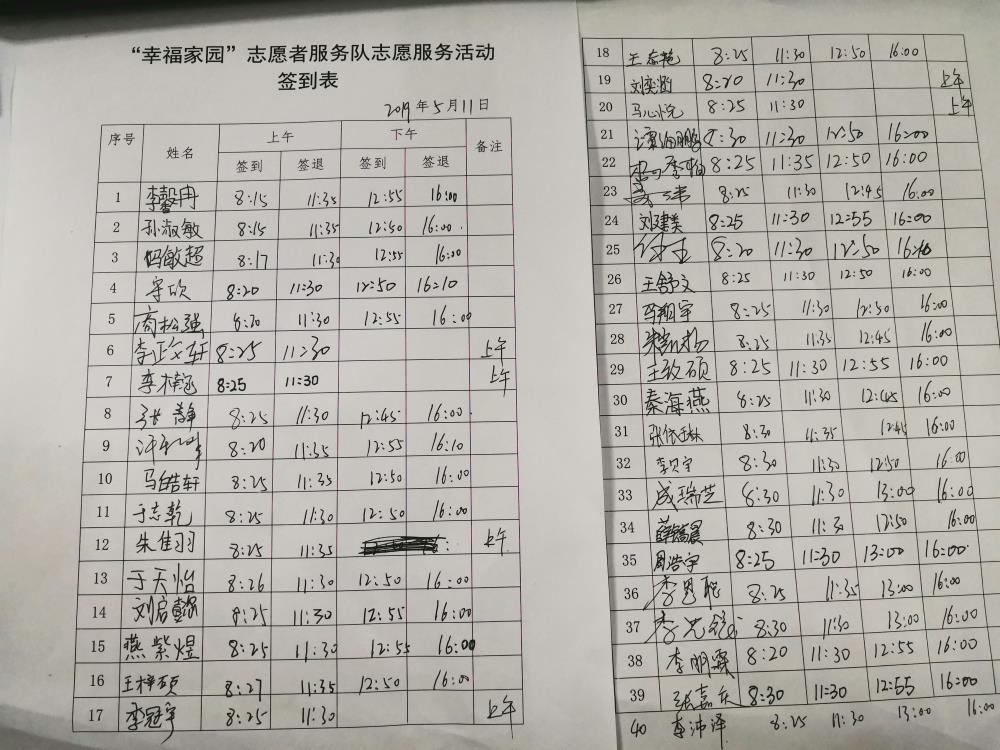 “幸福家园”志愿者服务队志愿服务活动
签到表
2019年5月11日
序号 姓名 上午 下午 备注
签到 签退 签到 签退
1 李馨冉 8:15 11:35 12:55 16:00
2 孙淑敏 8:15 11:35 12:50 16:00
3 敏超 8:17 11:30 12:55 16:00
4 8:20 11:30 12:50 16:10
5 商松强 8:20 11:30 12:55 16:00
6 李 轩 8:25 11:30 上午
7 李梓涵 8:25 11:30 上午
8 张静 8:25 11:30 12:45 16:00
9 8:20 11:35 12:55 16:10
10 马皓轩 8:25 11:35 12:50 16:00
11 于志乾 8:25 11:30 12:50 16:00
12 朱佳羽 8:25 11:35 上午
13 于天怡 8:26 11:30 12:50 16:00
14 刘启 8:25 11:30 12:55 16:00
15 燕紫煜 8:25 11:30 12:55 16:00
16 王梓硕 8:27 11:35 12:50 16:00
17 李冠宇 8:25 11:30 上午
18 王志艳 8:25 11:30 12:50 16:00
19 刘奕涵 8:20 11:30 上午
20 马心悦 8:25 11:30 上午
21 8:30 11:30 12:50 16:00
22 8:25 11:35 12:50 16:00
23 8:25 11:30 12:45 16:00
24 刘建美 8:25 11:30 12:55 16:00
25 8:20 11:30 12:50 16:10
26 王舒文 8:25 11:30 12:50 16:00
27 马翔宇 8:25 11:30 12:50 16:00
28 8:25 11:35 12:45 16:00
29 王政硕 8:25 11:30 12:55 16:00
30 秦海燕 8:25 11:30 12:45 16:00
31 张依琳 8:30 11:35 12:45 16:00
32 李贝宇 8:30 11:30 12:50 16:00
33 成瑞芝 8:30 11:30 13:00 16:00
34 薛皓晨 8:30 11:30 12:50 16:00
35 周浩宇 8:25 11:30 13:00 16:00
36 李思聪 8:25 11:35 13:00 16:00
37 李 8:30 11:30 13:00 16:00
38 李明霖 8:20 11:30 12:55 16:00
39 张嘉乐 8:30 11:30 12:55 16:00
40 李沛泽 8:25 11:30 13:00 16:00